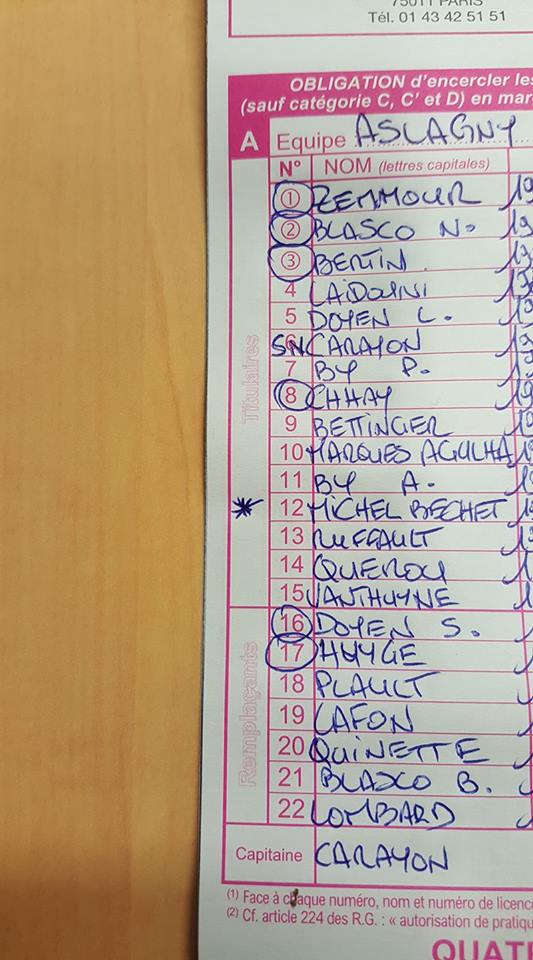 75011 PARIS
Tél. 01 43 42 51 51
OBLIGATION d'encercler les
(sauf catégorie C, C' et D) en mar
A Equipe ASLAGNY
N° NOM (lettres capitales)
1 ZEMMOUR 19
2 BLASCO N. 19
3 BERTIN 19
4 LAIDOUNI 19
5 DOYEN L. 19
SN CARAYON 19
7 BY P. 19
8 CHHAY 19
9 BETTINGER 19
10 MARQUES AGULHA 19
11 BY A. 19
* 12 MICHEL BECHET 19
13 RUFFAULT 19
14 QUEROU 1
15 VANTHUYNE 1
Titulaires
16 DOYEN S.
17 HUYGE
18 PLAULT
19 LAFON
20 QUINETTE
21 BLASCO B.
22 LOMBARD
Remplaçants
Capitaine CARAYON
(1) Face à chaque numéro, nom et numéro de licence
(2) Cf. article 224 des R.G. : « autorisation de pratiqu
QUATR